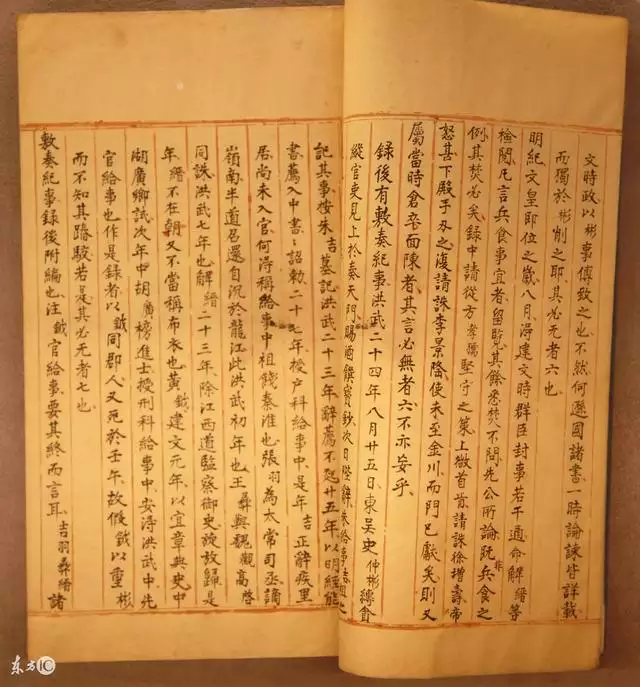 文時政以彬事傅致之也不然何遜國諸書一時論諫皆詳載
而獨於彬削之耶其必無者六也
明紀文皇即位之歲八月得建文時群臣封事若干通命解縉等
檢閱凡言兵食事宜者留覧其餘悉焚不問先公所論既非兵食之
例其焚必矣録中請從方孝孺堅守之策上徴首肯請誅徐增壽帝
怒甚下殿手刃之復請誅李景隆使未至金川而門已獻矣則又
屬當時倉卒面陳者其言必無者六不亦妄乎
録後有敷奏紀事洪武二十四年八月廿五日東吴史仲彬縛貪
縱官吏見上於奏天門賜酒饌寳鈔次日陛辭朱給事吉祖之
記其事按朱吉墓記洪武二十三年辭薦不起廿五年以明經能
書薦入中書詔勅二十七年授户科給事中是年吉正辭疾里
居尚未入官何得稱給事中祖餞秦淮也張羽為太常司丞謫
嶺南半道召還自沉於龍江此洪武初年也王彝與魏觀高啓
同誅洪武七年也解縉二十三年除江西道監察御史旋放歸是
年縉不在朝又不當稱布衣也黄鉞建文元年以宜章典史中
湖廣鄉試次年中胡廣榜進士授刑科給事中安得洪武中先
官給事也作是録者以鉞同郡人又死於壬年故假鉞以重彬
而不知其踳駁若是其必无者七也
敷奏紀事録後附編也注鉞官給事要其終而言耳吉羽彝縉諸
东方IC